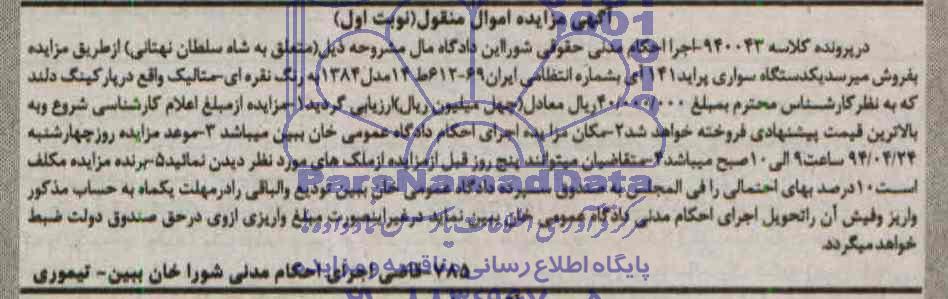 آگهی مزایده اموال منقول(نوبت اول)
درپرونده کلاسه ۹۴۰۰۴۳-اجرا احکام مدنی حقوقی شورااین دادگاه مال مشروحه ذیل(متعلق به شاه سلطان نهتانی) ازطریق مزایده
بفروش میرسدیکدستگاه سواری پراید۱۴۱ ای بشماره انتظامی ایران۶۹-۶۱۲ط۱۴مدل۱۳۸۴به رنگ نقره ای-متالیک واقع درپارکینگ دلند
که به نظرکارشناس محترم بمبلغ ۴۰/۰۰۰/۰۰۰ریال معادل(چهل میلیون ریال)ارزیابی گردید۱-مزایده ازمبلغ اعلام کارشناسی شروع وبه
بالاترین قیمت پیشنهادی فروخته خواهد شد۲-مکان مزایده اجرای احکام دادگاه عمومی خان ببین میباشد ۳-موعد مزایده روزچهارشنبه
۹۴/۰۴/۲۴ ساعت۹ الی ۱۰صبح میباشد۴-متقاضیان میتوانند پنج روز قبل ازمزایده ازملک های مورد نظر دیدن نمائید۵-برنده مزایده مکلف
است۱۰درصد بهای احتمالی را فی المجلس به صندوق سپرده دادگاه عمومی خان ببین تودیع والباقی رادرمهلت یکماه به حساب مذکور
واریز وفیش آن راتحویل اجرای احکام مدنی دادگاه عمومی خان ببین نماید درغیراینصورت مبلغ واریزی ازوی درحق صندوق دولت ضبط
خواهدمیگردد
۷۸۵-قاضی اجرای احکام مدنی شورا خان ببین- تیموری
ParsNamadData
پایگاه اطلاع رسانی مناقصه و مزایده